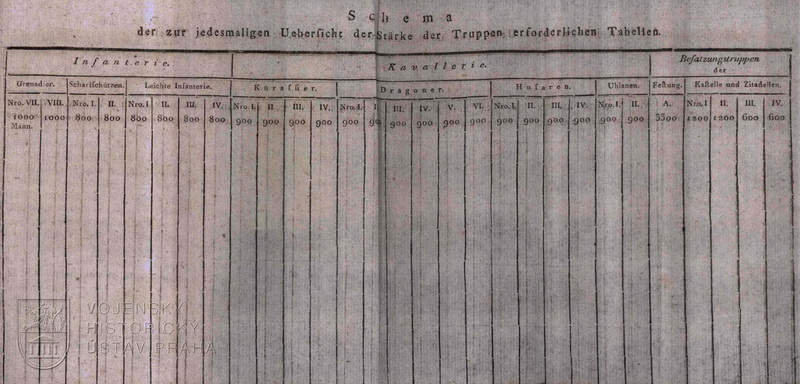 Schema
der zur jedesmaligen Ueberſicht der Stärke der Truppen erforderlichen Tabellen.
Infanterie. Kavallerie. Beſatzungstruppen
der
Grenadier. Scharfſchützen. Leichte Infanterie. Küraſſier. Dragoner. Huſaren. Uhlanen. Feſtung. Kaſtelle und Zitadellen.
Nro. VII. VIII. Nro. I. II. Nro. I II. III. IV. Nro. I. II. III. IV. Nro. I. III. IV. V. VI. Nro. I. II. III. IV. Nro. I. II. A. Nro. I II. III. IV.
1000 1000 800 800 800 800 800 800 900 900 900 900 900 900 900 900 900 900 900 900 900 900 900 3500 1200 1200 600 600
Mann.
VOJENSKÝ
HISTORICKÝ
ÚSTAV PRAHA